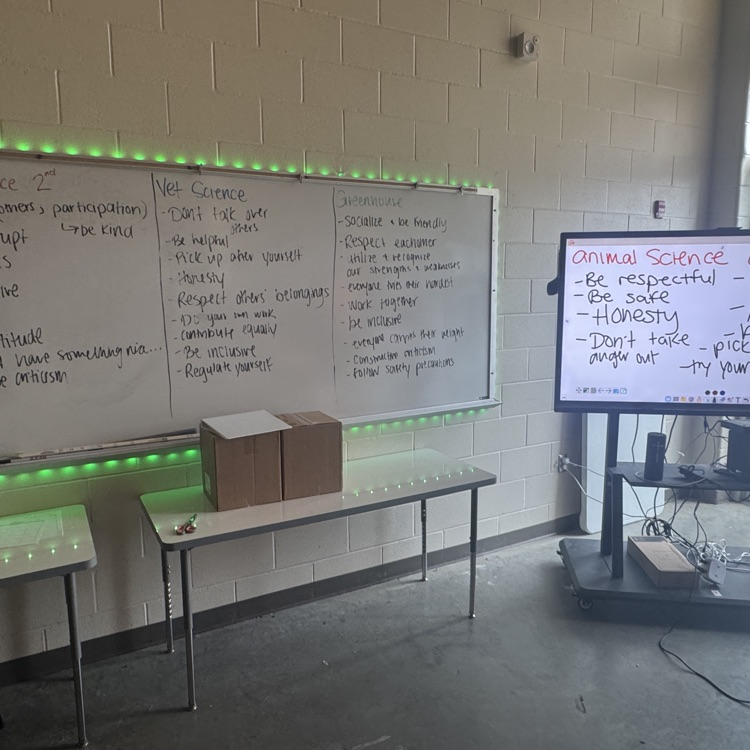 ce 2nd
others, participation)
↳ be kind
upt
s
ive
titude
have something nice...
criticism
Vet Science
- Don't talk over others
- Be helpful
- Pick up after yourself
- Honesty
- Respect others' belongings
- Do your own work
- contribute equally
- Be inclusive
- Regulate yourself
Greenhouse
- Socialize & be friendly
- Respect eachother
- utilize & recognize
our strengths & weaknesses
- everyone tries their hardest
- Work together
- be inclusive
- everyone carries their weight
- Constructive criticism
- Follow safety precautions
animal Science
- Be respectful
- Be safe
- Honesty
- Don't take
anger out
- pick
- try your